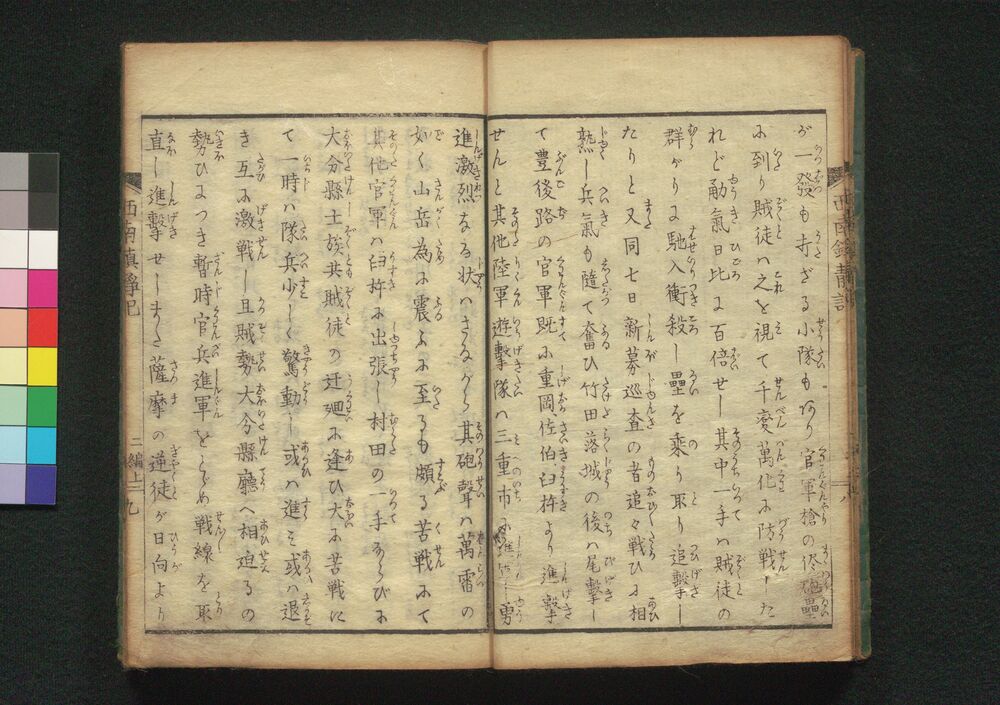 が一發も打ざる小隊もあり官軍槍の侭砲壘
に到り賊徒ハ之を視て千変萬化に防戦した
れど勇氣日比に百倍せし其中一手ハ賊徒の
群がりに馳入衝殺し壘を乗り取り追撃し
たりと又同七日新募巡査の者追々戦ひに相
熟し兵氣も随て奮ひ竹田落城の後ハ尾撃し
て豊後路の官軍既に重岡佐伯臼杵より進撃
せんと其他陸軍遊撃隊ハ三重市に進撃し勇
進激烈なる状ハさながら其砲聲ハ萬雷の
如く山岳為に震ふに至るも頗る苦戦にて
其他官軍ハ臼杵に出張し村田の一手ならびに
大分縣士族共賊徒の迂廻に逢ひ大に苦戦に
て一時ハ隊兵少しく驚動し或ハ進み或ハ退
き互に激戦し且賊勢大分縣廳へ相迫るの
勢ひにつき暫時官兵進軍をとゞめ戦線を取
直し進撃せしまた薩摩の逆徒が日向より
西南鎮静記
二編上
九